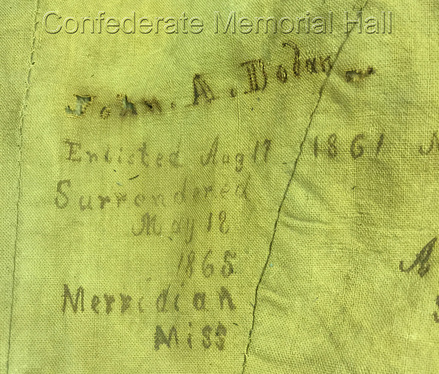 Confederate Memorial Hall
John. A. Dolan
Enlisted Aug 17 1861
Surrendered
May 12
1865
Merridian
Miss